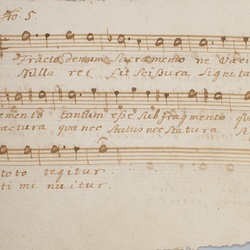 No. 5.
Fracto demum Sacramento ne Vaci
Nulla rei fit Scissura Signi ta
emento tantum esse sub fragmento qu
actura qua nec status nec statura si
toto tegitur.
ti mi nuitur.